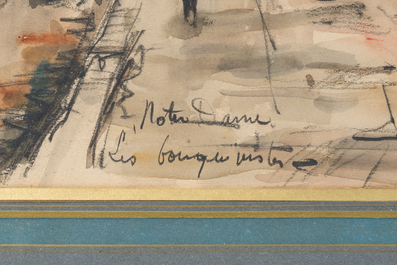 Notre Dame
Les bouquinistes